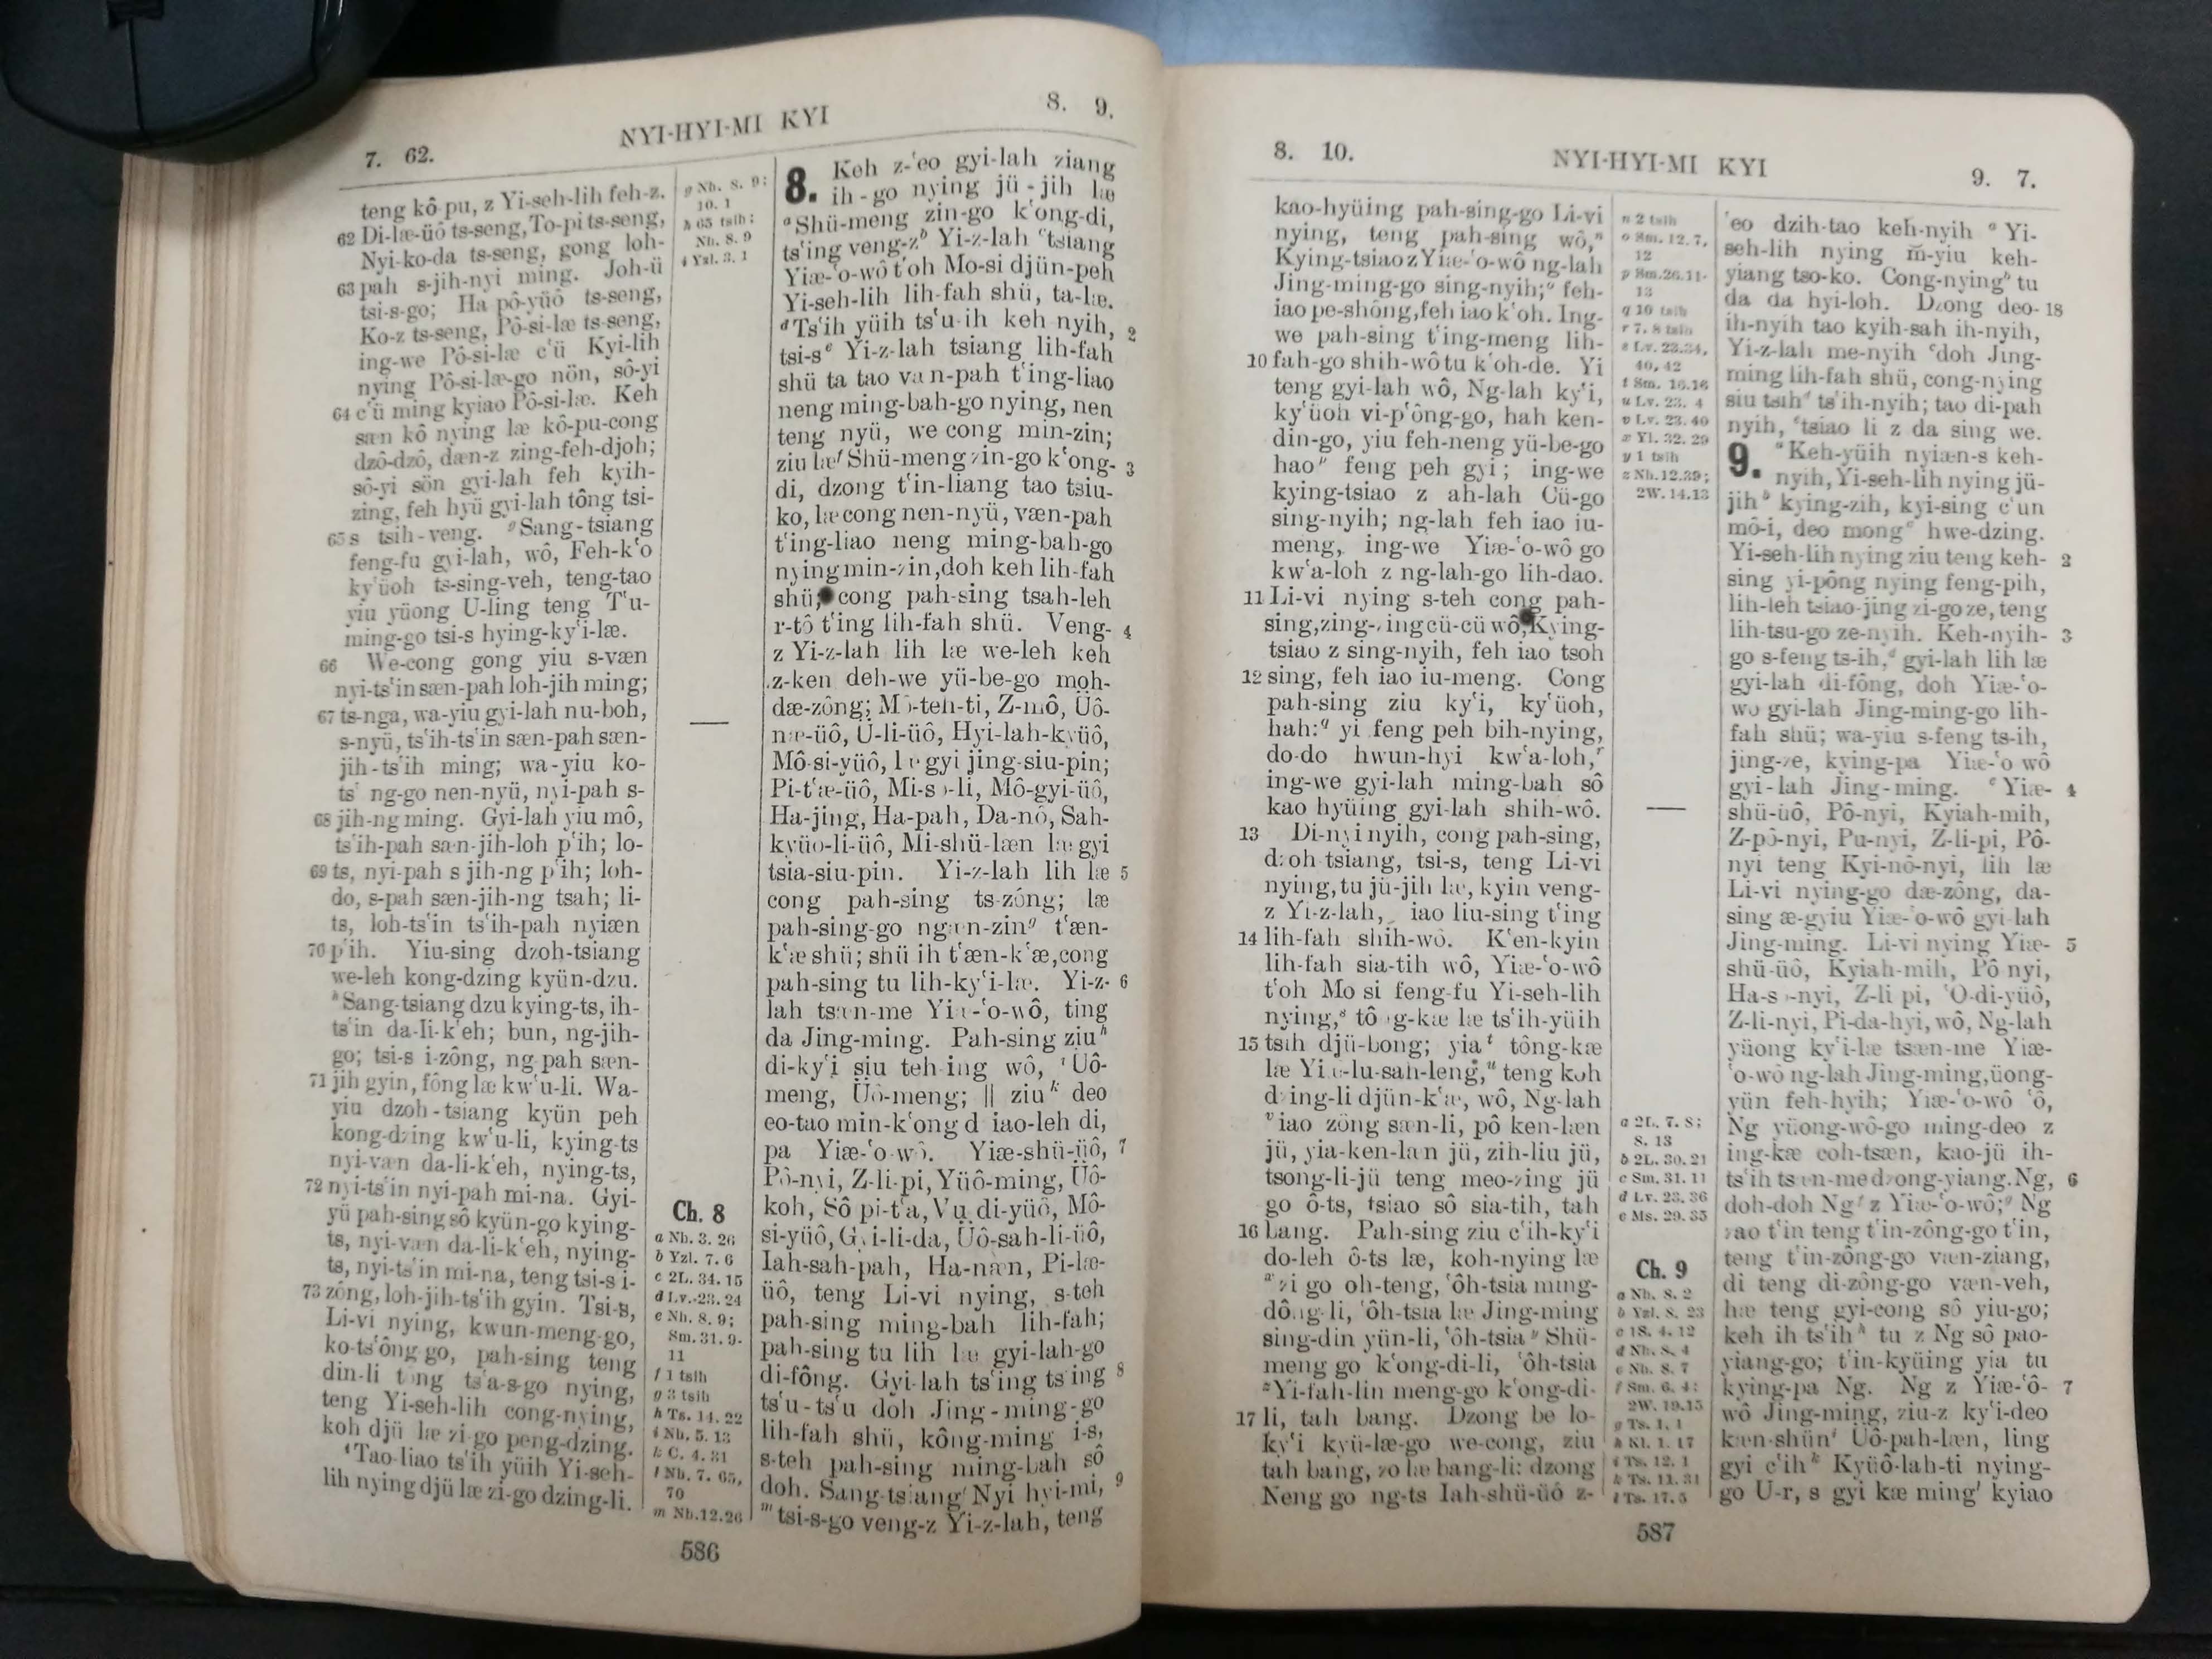 7. 62.
NYI-HYI-MI KYI
8. 9.
teng kô-pu, z Yi-seh-lih feh-z.
62 Di-læ-üô ts-seng, To-pi ts-seng,
Nyi-ko-da ts-seng, gong loh-
63 pah s-jih-nyi ming. Joh-ü
tsi-s-go; Ha pô-yüô ts-seng,
Ko-z ts-seng, Pô-si-læ ts-seng,
ing-we Pô-si-læ c'ü Kyi-lih
nying Pô-si-læ-go nön, sô-yi
64 c'ü ming kyiao Pô-si-læ. Keh
sæn kô nying læ kô-pu-cong
dzô-dzô, dæn-z zing-feh-djoh;
sô-yi sön gyi-lah feh kyih-
zing, feh hyü gyi-lah tông tsi-
65 s tsih-veng. g Sang-tsiang
feng-fu gyi-lah, wô, Feh-k'o
ky'üoh ts-sing-veh, teng-tao
yiu yüong U-ling teng T'u-
ming-go tsi-s hying-ky'i-læ.
66 We-cong gong yiu s-væn
nyi-ts'in sæn-pah loh-jih ming;
67 ts-nga, wa-yiu gyi-lah nu-boh,
s-nyü, ts'ih-ts'in sæn-pah sæn-
jih-ts'ih ming; wa-yiu ko-
ts' ng-go nen-nyü, nyi-pah s-
68 jih-ng ming. Gyi-lah yiu mô,
ts'ih-pah sæn-jih-loh p'ih; lo-
69 ts, nyi-pah s jih-ng p'ih; loh-
do, s-pah sæn-jih-ng tsah; li-
ts, loh-ts'in ts'ih-pah nyiæn
70 p'ih. Yiu-sing dzoh-tsiang
we-leh kong-dzing kyün-dzu.
h Sang-tsiang dzu kying-ts, ih-
ts'in da-li-k'eh; bun, ng-jih-
go; tsi-s i-zông, ng-pah sæn-
71 jih gyin, fông læ kw'u-li. Wa-
yiu dzoh-tsiang kyün peh
kong-dzing kw'u-li, kying-ts
nyi-væn da-li-k'eh, nying-ts,
72 nyi-ts'in nyi-pah mi-na. Gyi-
yü pah-sing sô kyün-go kying-
ts, nyi-væn da-li-k'eh, nying-
ts, nyi-ts'in mi-na, teng tsi-s i-
73 zông, loh-jih-ts'ih gyin. Tsi-s,
Li-vi nying, kwun-meng-go,
ko-ts'ông go, pah-sing teng
din-li tông ts'a-s-go nying,
teng Yi-seh-lih cong-nying,
koh djü læ zi-go peng-dzing.
i Tao-liao ts'ih yüih Yi-seh-
lih nying djü læ zi-go dzing-li.
g Nh. 8. 9;
10. 1
h 65 tsih;
Nh. 8. 9
i Yzl. 3. 1
Ch. 8
a Nh. 3. 26
b Yzl. 7. 6
c 2L. 34. 15
d Lv. 23. 24
e Nh. 8. 9;
Sm. 31. 9-
11
f 1 tsih
g 3 tsih
h Ts. 14. 22
i Nh. 5. 13
k C. 4. 31
l Nh. 7. 65,
70
m Nh. 12. 26
8. Keh z-'eo gyi-lah ziang
ih-go nying jü-jih læ
a Shü-meng zin-go k'ong-di,
ts'ing veng-z b Yi-z-lah c tsiang
Yiæ-'o-wô t'oh Mo-si djün-peh
Yi-seh-lih lih-fah shü, ta-læ.
d Ts'ih yüih ts'u-ih keh nyih, 2
tsi-s e Yi-z-lah tsiang lih-fah
shü ta tao væn-pah t'ing-liao
neng ming-bah-go nying, nen
teng nyü, we cong min-zin;
ziu læ f Shü-meng zin-go k'ong- 3
di, dzong t'in-liang tao tsiu-
ko, læ cong nen-nyü, væn-pah
t'ing-liao neng ming-bah-go
nying min-zin, doh keh lih-fah
shü; cong pah-sing tsah-leh
r-tô t'ing lih-fah shü. Veng- 4
z Yi-z-lah lih læ we-leh keh
z-ken deh-we yü-be-go moh-
dæ-zông; Mô-teh-ti, Z-mô, Üô-
næ-üô, U-li-üô, Hyi-lah-kyüô,
Mô-si-yüô, læ gyi jing-siu-pin;
Pi-t'æ-üô, Mi-sô-li, Mô-gyi-üô,
Ha-jing, Ha-pah, Da-nô, Sah-
kyüo-li-üô, Mi-shü-læn læ gyi
tsia-siu-pin. Yi-z-lah lih læ 5
cong pah-sing ts-zông; læ
pah-sing-go ngæn-zin g t'æn-
k'æ shü; shü ih t'æn-k'æ, cong
pah-sing tu lih-ky'i-læ. Yi-z- 6
lah tsæn-me Yiæ-'o-wô, ting
da Jing-ming. Pah-sing ziu h
di-ky'i siu teh-ing wô, i Üô-
meng, Üô-meng; || ziu k deo
eo-tao min-k'ong d iao-leh di,
pa Yiæ-'o-wô. Yiæ-shü-üô, 7
Pô-nyi, Z-li-pi, Yüô-ming, Üô-
koh, Sô pi-t'a, Vu di-yüô, Mô-
si-yüô, Gyi-li-da, Üô-sah-li-üô,
Iah-sah-pah, Ha-næn, Pi-læ-
üô, teng Li-vi nying, s-teh
pah-sing ming-bah lih-fah;
pah-sing tu lih læ gyi-lah-go
di-fông. Gyi-lah ts'ing ts'ing 8
ts'u-ts'u doh Jing-ming-go
lih-fah shü, kông-ming i-s,
s-teh pah-sing ming-bah sô
doh. Sang-tsiang l Nyi hyi-mi, 9
m tsi-s-go veng-z Yi-z-lah, teng
586
8. 10.
NYI-HYI-MI KYI
9. 7.
kao-hyüing pah-sing-go Li-vi
nying, teng pah-sing wô, n
Kying-tsiao z Yiæ-'o-wô ng-lah
Jing-ming-go sing-nyih; o feh-
iao pe-shông, feh iao k'oh. Ing-
we pah-sing t'ing-meng lih-
10 fah-go shih-wô tu k'oh-de. Yi
teng gyi-lah wô, Ng-lah ky'i,
ky'üoh vi-p'ông-go, hah ken-
din-go, yiu feh-neng yü-be-go
hao p feng peh gyi; ing-we
kying-tsiao z ah-lah Cü-go
sing-nyih; ng-lah feh iao iu-
meng, ing-we Yiæ-'o-wô go
kw'a-loh z ng-lah-go lih-dao.
11 Li-vi nying s-teh cong pah-
sing, zing-zing cü-cü wô, Kying-
tsiao z sing-nyih, feh iao tsoh
12 sing, feh iao iu-meng. Cong
pah-sing ziu ky'i, ky'üoh,
hah: q yi feng peh bih-nying,
do-do hwun-hyi kw'a-loh, r
ing-we gyi-lah ming-bah sô
kao hyüing gyi-lah shih-wô.
13 Di-nyi nyih, cong pah-sing,
dzoh-tsiang, tsi-s, teng Li-vi
nying, tu jü-jih læ, kyin veng-
z Yi-z-lah, iao liu-sing t'ing
14 lih-fah shih-wô. K'en-kyin
lih-fah sia-tih wô, Yiæ-'o-wô
t'oh Mo si feng-fu Yi-seh-lih
nying, s tông-kæ læ ts'ih-yüih
15 tsih djü-bong; yia t tông-kæ
læ Yiæ-lu-sah-leng, u teng koh
dzing-li djün-k'æ, wô, Ng-lah
v iao zông sæn-li, pô ken-læn
jü, yia-ken-lan jü, zih-liu jü,
tsong-li-jü teng meo-zing jü
go ô-ts, tsiao sô sia-tih, tah
16 bang. Pah-sing ziu c'ih-ky'i
do-leh ô-ts læ, koh-nying læ
x zi go oh-teng, 'ôh-tsia ming-
dông-li, 'ôh-tsia læ Jing-ming
sing-din yün-li, 'ôh-tsia y Shü-
meng go k'ong-di-li, 'ôh-tsia
z Yi-fah-lin meng-go k'ong-di-
17 li, tah bang. Dzong be lo-
ky'i kyü-læ-go we-cong, ziu
tah bang, zo læ bang-li: dzong
Neng go ng-ts Iah-shü-üô z-
n 2 tsih
o Sm. 12. 7,
12
p Sm. 26. 11-
13
q 10 tsih
r 7. 8 tsih
s Lv. 23. 34,
40, 42
t Sm. 16. 16
u Lv. 23. 4
v Lv. 23. 40
x Yl. 32. 29
y 1 tsih
z Nh. 12. 39;
2W. 14. 13
a 2L. 7. 8;
8. 13
b 2L. 30. 21
c Sm. 31. 11
d Lv. 23. 36
e Ms. 29. 35
Ch. 9
a Nh. 8. 2
b Yzl. 8. 23
c 1S. 4. 12
d Nh. 8. 4
e Nh. 8. 7
f Sm. 6. 4;
2W. 19. 15
g Ts. 1. 1
h Kl. 1. 17
i Ts. 12. 1
k Ts. 11. 31
l Ts. 17. 5
'eo dzih-tao keh-nyih a Yi-
seh-lih nying m̄-yiu keh-
yiang tso-ko. Cong-nying b tu
da da hyi-loh. Dzong deo- 18
ih-nyih tao kyih-sah ih-nyih,
Yi-z-lah me-nyih c doh Jing-
ming lih-fah shü, cong-nying
siu tsih d ts'ih-nyih; tao di-pah
nyih, e tsiao li z da sing we.
9. a Keh-yüih nyiæn-s keh-
nyih, Yi-seh-lih nying jü-
jih b kying-zih, kyi-sing c'un
mô-i, deo mong c hwe-dzing.
Yi-seh-lih nying ziu teng keh- 2
sing yi-pông nying feng-pih,
lih-leh tsiao-jing zi-go ze, teng
lih-tsu-go ze-nyih. Keh-nyih- 3
go s-feng ts-ih, d gyi-lah lih læ
gyi-lah di-fông, doh Yiæ-'o-
wo gyi-lah Jing-ming-go lih-
fah shü; wa-yiu s-feng ts-ih,
jing-ze, kying-pa Yiæ-'o wô
gyi-lah Jing-ming. e Yiæ- 4
shü-üô, Pô-nyi, Kyiah-mih,
Z-pô-nyi, Pu-nyi, Z-li-pi, Pô-
nyi teng Kyi-nô-nyi, lih læ
Li-vi nying-go dæ-zông, da-
sing æ-gyiu Yiæ-'o-wô gyi-lah
Jing-ming. Li-vi nying Yiæ- 5
shü-üô, Kyiah-mih, Pô nyi,
Ha-sô-nyi, Z-li pi, 'O-di-yüô,
Z-li-nyi, Pi-da-hyi, wô, Ng-lah
yüong ky'i-læ tsæn-me Yiæ-
'o-wô ng-lah Jing-ming, üong-
yün feh-hyih; Yiæ-'o-wô 'ô,
Ng yüong-wô-go ming-deo z
ing-kæ coh-tsæn, kao-jü ih-
ts'ih tsæn-me dzong-yiang. Ng, 6
doh-doh Ng f z Yiæ-'o-wô; g Ng
zao t'in teng t'in-zông-go t'in,
teng t'in-zông-go væn-ziang,
di teng di-zông-go væn-veh,
hæ teng gyi-cong sô yiu-go;
keh ih ts'ih h tu z Ng sô pao-
yiang-go; t'in-kyüing yia tu
kying-pa Ng. Ng z Yiæ-'ô- 7
wô Jing-ming, ziu-z ky'i-deo
kæn-shün i Üô-pah-læn, ling
gyi c'ih k Kyüô-lah-ti nying-
go U-r, s gyi kæ ming l kyiao
587